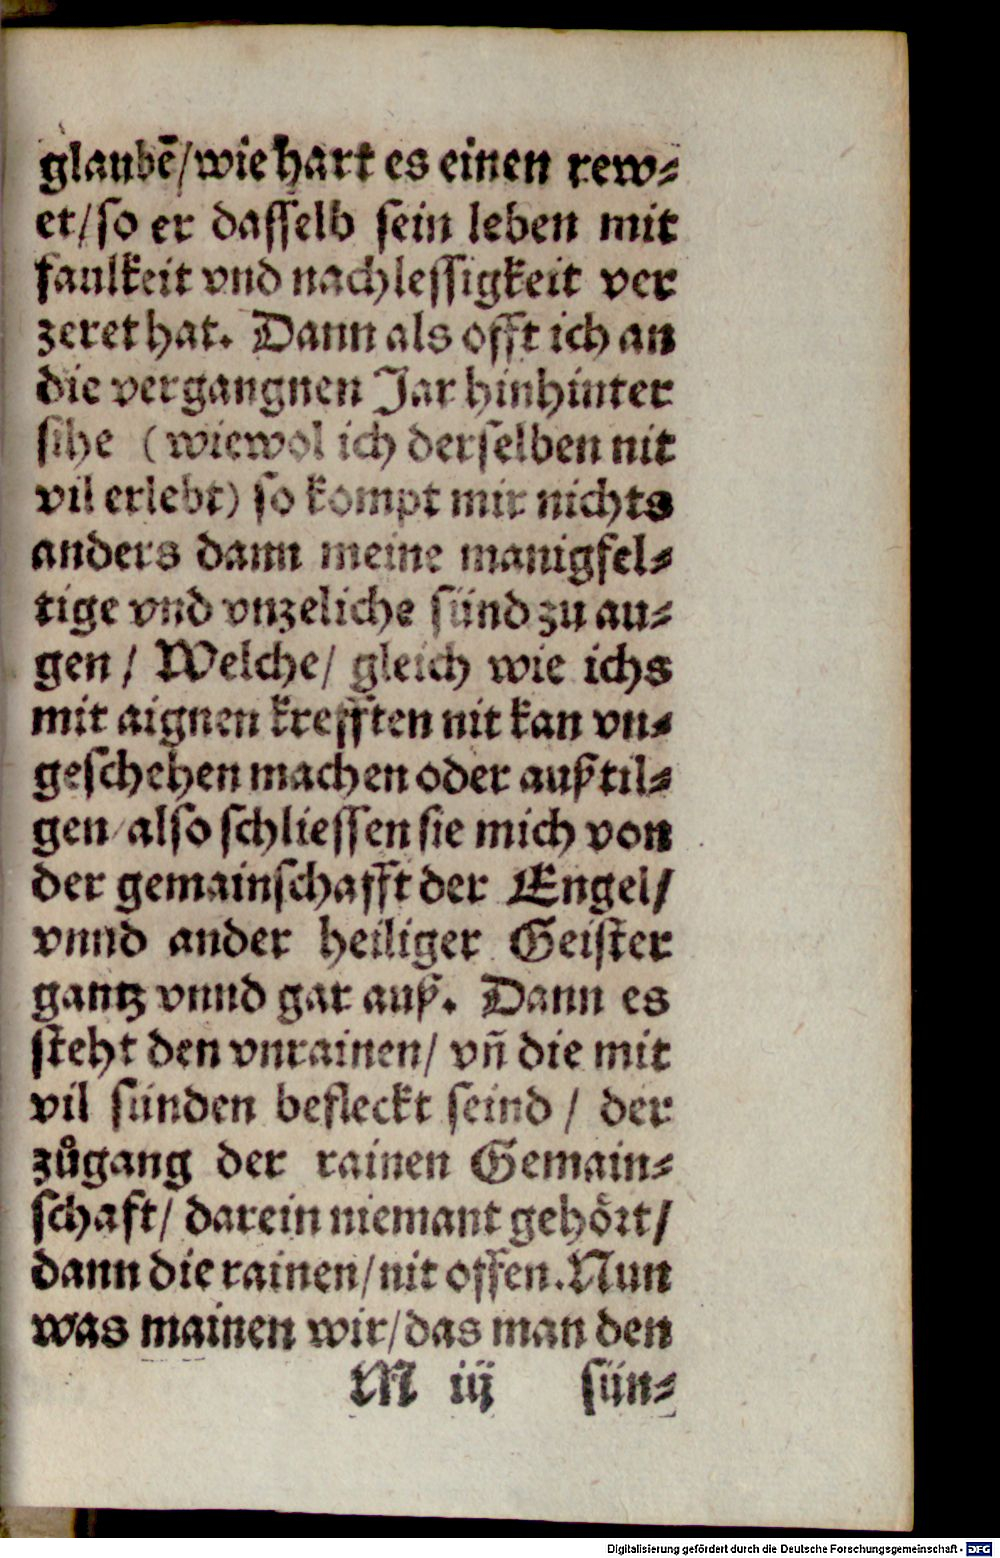 glaubē/wie hart es einen rew⸗
et/so er dasselb sein leben mit
faulkeit vnd nachlessigkeit ver
zeret hat. Dann als offt ich an
die vergangnen Jar hinhinter
sihe (wiewol ich derselben nit
vil erlebt) so kompt mir nichts
anders dann meine manigfel⸗
tige vnd vnzeliche sünd zu au⸗
gen/ Welche/ gleich wie ichs
mit aignen krefften nit kan vn⸗
geschehen machen oder außtil⸗
gen/also schliessen sie mich von
der gemainschafft der Engel/
vnnd ander heiliger Geister
gantz vnnd gar auß. Dann es
steht den vnrainen/ vñ die mit
vil sünden befleckt seind / der
zůgang der rainen Gemain⸗
schaft/ darein niemant gehört/
dann die rainen/nit offen. Nun
was mainen wir/das man den
M iij sün⸗
Digitalisierung gefördert durch die Deutsche Forschungsgemeinschaft - DFG